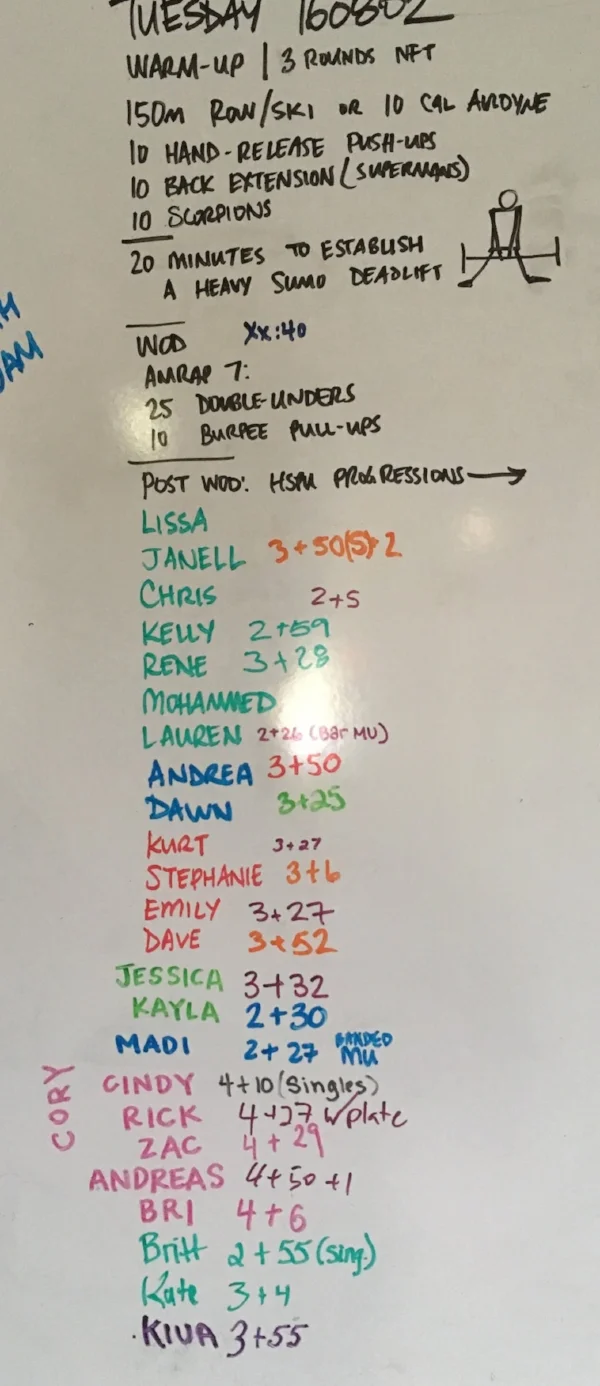 TUESDAY 160802
WARM-UP | 3 ROUNDS NFT
150M ROW/SKI OR 10 CAL AIRDYNE
10 HAND-RELEASE PUSH-UPS
10 BACK EXTENSION (SUPERMANS)
10 SCORPIONS
20 MINUTES TO ESTABLISH
A HEAVY SUMO DEADLIFT
WOD XX:40
AMRAP 7:
25 DOUBLE-UNDERS
10 BURPEE PULL-UPS
POST WOD: HSPU PROGRESSIONS →
LISSA
JANELL 3+50(S)+2
CHRIS 2+5
KELLY 2+59
RENE 3+28
MOHAMMED
LAUREN 2+26 (Bar MU)
ANDREA 3+50
DAWN 3+25
KURT 3+27
STEPHANIE 3+6
EMILY 3+27
DAVE 3+52
JESSICA 3+32
KAYLA 2+30
MADI 2+27 BANDED MU
CORY
CINDY 4+10 (Singles)
RICK 4+27 w/plate
ZAC 4+29
ANDREAS 4+50+1
BRI 4+6
Britt 2+55 (sing.)
Kate 3+4
KIVA 3+55